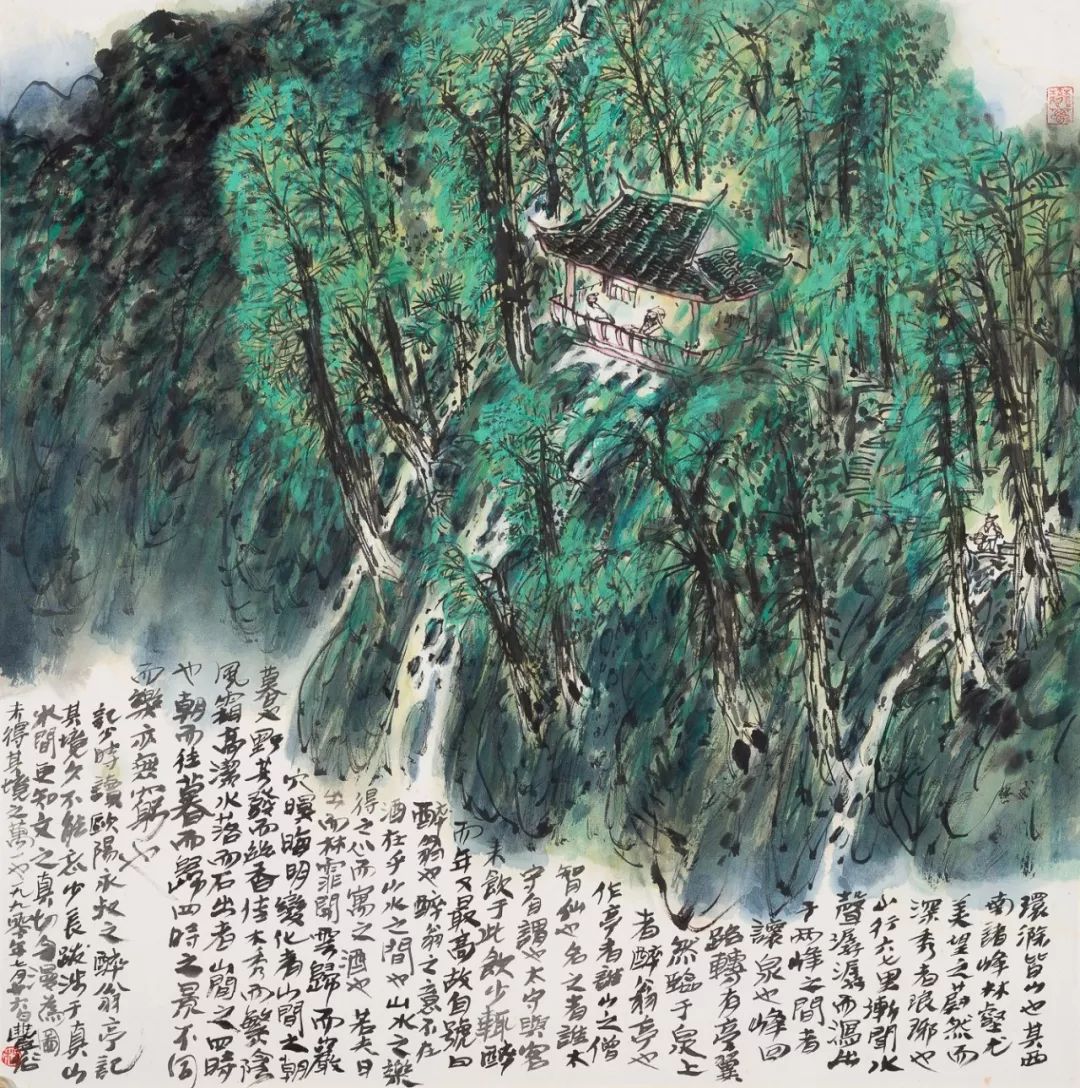 環滁皆山也其西
南諸峰林壑尤
美望之蔚然而
深秀者琅琊也
山行六七里漸聞水
聲潺潺而瀉出
于兩峰之間者
讓泉也峰回
路轉有亭翼
然臨于泉上
者醉翁亭也
作亭者誰山之僧
智仙也名之者誰太
守自謂也太守與客
來飲于此飲少輒醉
而年又最高故自號曰
醉翁也醉翁之意不在
酒在乎山水之間也山水之樂
得之心而寓之酒也若夫日
出而林霏開雲歸而巖
穴暝晦明變化者山間之朝
暮也野芳發而幽香佳木秀而繁陰
風霜高潔水落而石出者山間之四時
也朝而往暮而歸四時之景不同
而樂亦無窮也
記少時讀歐陽永叔之醉翁亭記
其境久不能忘少長跋涉于真山
水間更知文之真切漫為圖
未得其境之萬一也一九九零年七月廿六日